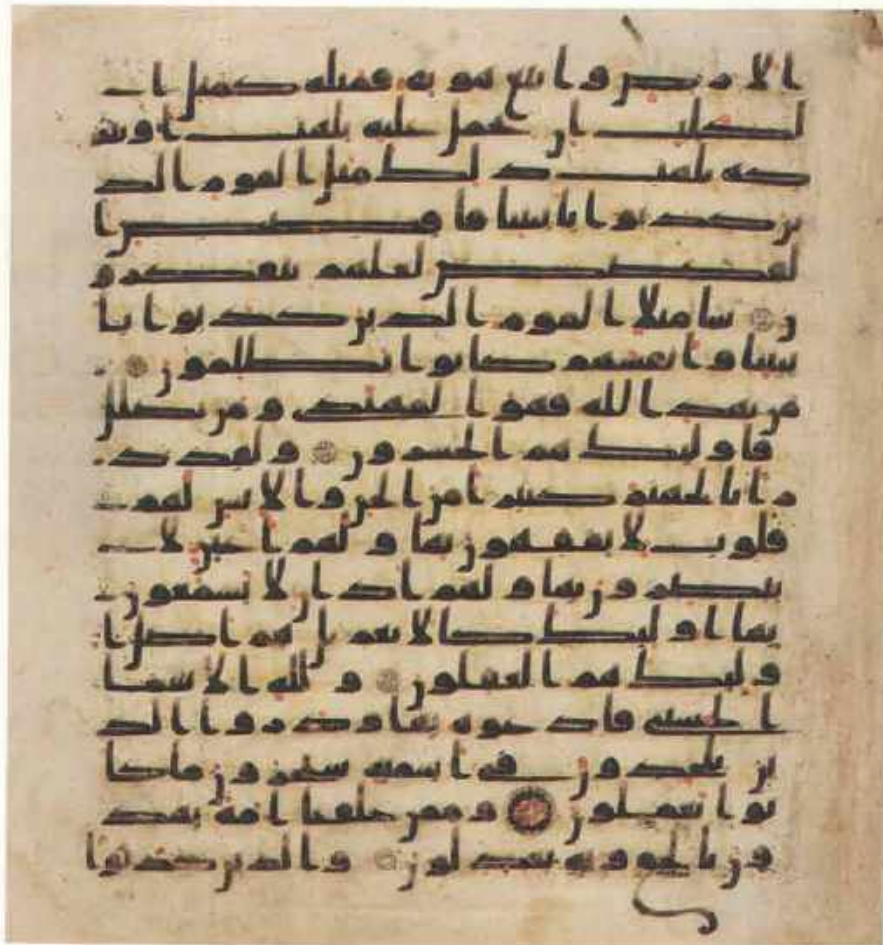 الارض واتبع هويه فمثله كمثل ا
لكلب ان تحمل عليه يلهث او تتر
كه يلهث ذلك مثل القوم الذ
ين كذبوا بايتنا فاقصص ا
لقصص لعلهم يتفكرو
ن سا مثلا القوم الذين كذبوا با
يتنا وانفسهم كانوا يظلمون
من يهد الله فهو المهتدى ومن يضلل
فاوليك هم الخسرون ولقد ذ
رانا لجهنم كثيرا من الجن والانس لهم
قلوب لا يفقهون بها ولهم اعين لا
يبصرون بها ولهم اذان لا يسمعون
بها اوليك كالانعم بل هم اضل ا
وليك هم الغفلون ولله الاسما
الحسنى فادعوه بها وذروا الذ
ين يلحدون فى اسميه سيجزون ما كا
نوا يعملون وممن خلقنا امة يهد
ون بالحق وبه يعدلون والذين كذبوا